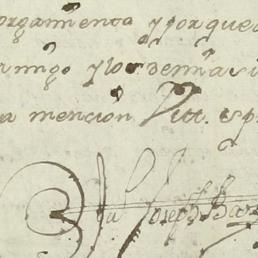 orgamiento y porque
migo y los demas
a mencion Vitt. esp
Joseph Bar